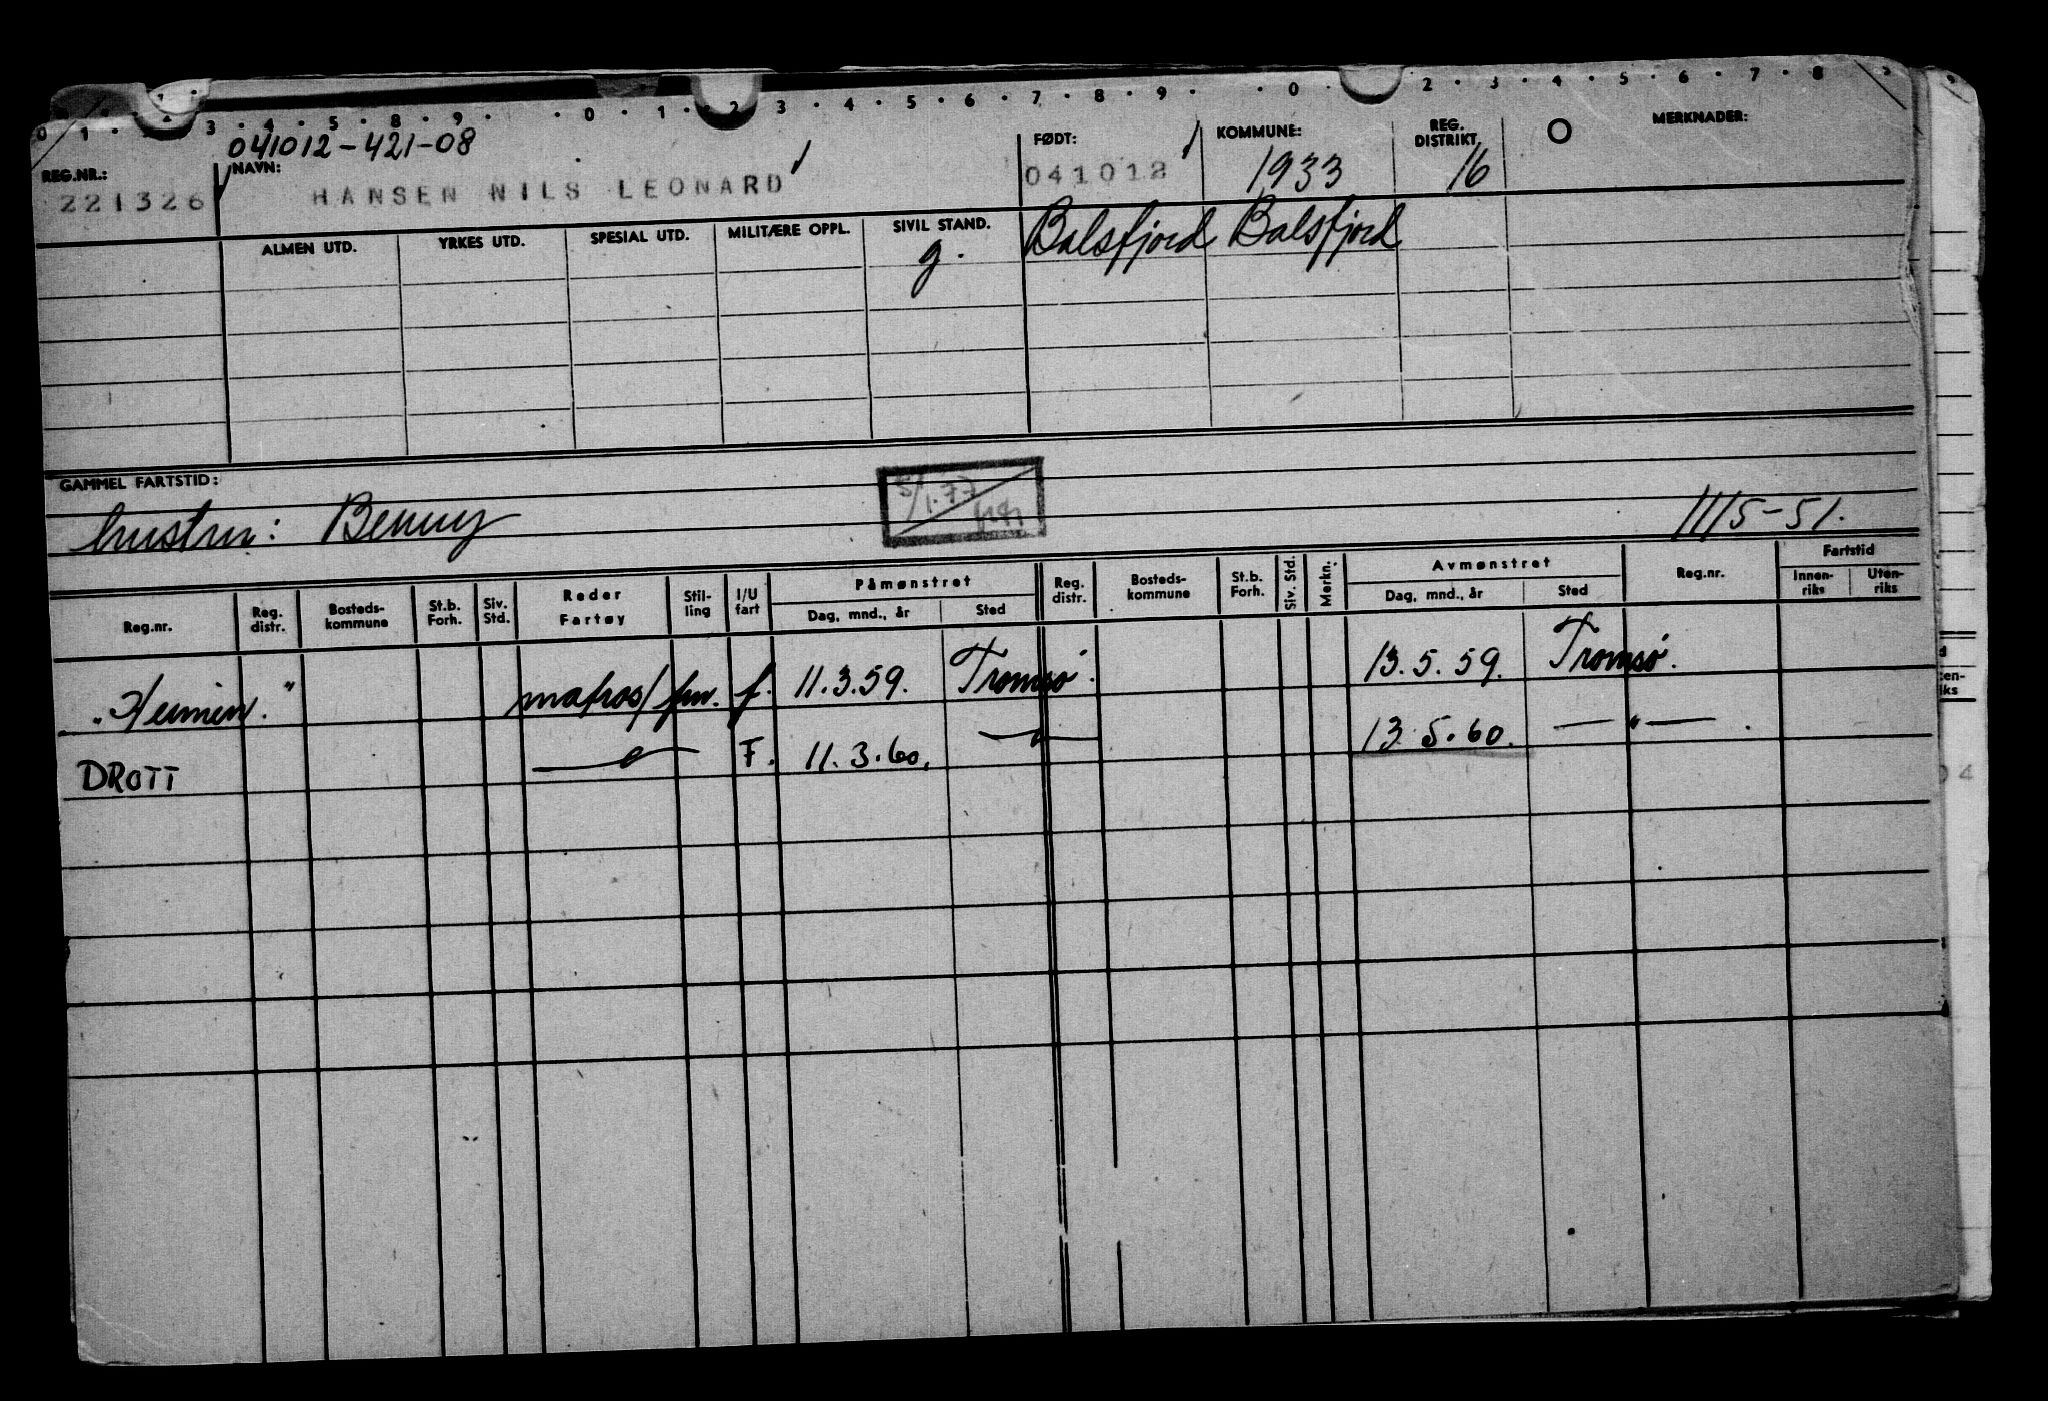 0 1 . 3 . 4 . 5 . 8 . 9 . . 0 . 1 . 2 3 . 4 . 5 . 6 . 7 . 8 . 9 . . 0 . 2 . 3 . 4 . 5 . 6 . 7 . 8
041012-421-08
REG.NR.: NAVN: FØDT: KOMMUNE: REG. DISTRIKT. O MERKNADER:
221326 HANSEN NILS LEONARD 041012 1933 16
ALMEN UTD. YRKES UTD. SPESIAL UTD. MILITÆRE OPPL. SIVIL STAND. Balsfjord Balsfjord
g.
GAMMEL FARTSTID:
5/1.77
hustru: Benny 11/5-51.
Reg.nr. Reg. distr. Bosteds-kommune St.b. Forh. Siv. Std. Reder Fartøy Stil-ling I/U fart Påmønstret Dag, mnd., år Sted Reg. distr. Bosteds-kommune St.b. Forh. Siv. Std. Merkn. Avmønstret Dag, mnd., år Sted Reg.nr. Fartstid Innen-riks Uten-riks
"Heimen." matros/fm. f. 11.3.59. Tromsø. 13.5.59. Tromsø.
DROTT —"— F. 11.3.60. —"— 13.5.60. —"— .